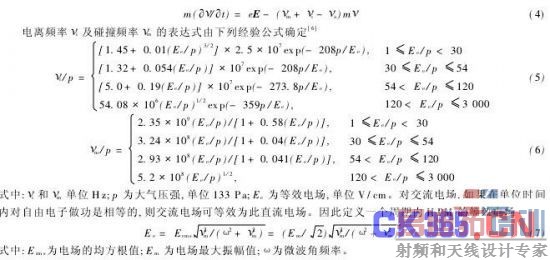 m(∂V/∂t) = eE − (νm + νi − νa)mV (4)
电离频率 νi 及碰撞频率 νm 的表达式由下列经验公式确定[6]
νi/p = { [1.45 + 0.01(Ee/p)^3/2] × 2.5 × 10^7 exp(− 208p/Ee), 1 ≤ Ee/p < 30
[1.32 + 0.054(Ee/p)] × 10^7 exp(− 208p/Ee), 30 ≤ Ee/p ≤ 54
[5.0 + 0.19(Ee/p)] × 10^7 exp(− 273.8p/Ee), 54 < Ee/p ≤ 120
54.08 × 10^6 (Ee/p)^1/2 exp(− 359p/Ee), 120 < Ee/p ≤ 3 000
(5)
νm/p = { 2.35 × 10^9 (Ee/p)/[1 + 0.58(Ee/p)], 1 ≤ Ee/p < 30
3.24 × 10^8 (Ee/p)/[1 + 0.04(Ee/p)], 30 ≤ Ee/p ≤ 54
2.93 × 10^8 (Ee/p)/[1 + 0.041(Ee/p)], 54 < Ee/p ≤ 120
5.2 × 10^8 (Ee/p)^1/2, 120 < Ee/p ≤ 3 000
(6)
式中: νi 和 νm 单位 Hz; p 为大气压强, 单位 133 Pa; Ee 为等效电场, 单位 V/cm。对交流电场, 如果在单位时间
内对自由电子做功是相等的, 则交流电场可等效为此直流电场。因此定义一个
Ee = Erms√νm²/(ω² + νm²) = (Em/√2)√νm²/(ω² + νm²)
式中: Erms 为电场的均方根值; Em 为电场最大振幅值; ω 为微波角频率。
CK365.CN
射频和天线设计专家